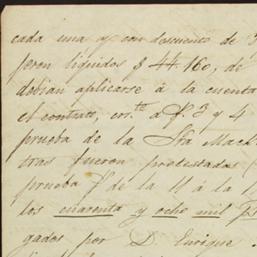 cada una y con descuento de 3
feron líquidos $ 44.160, de
debian aplicarse á la cuenta
el contrato, 3 y 4
prueba de la Sta Mack
tras fueron protestadas (
prueba de la 11 á la 1
los cuarenta y ocho mil
gados por D. Enrique